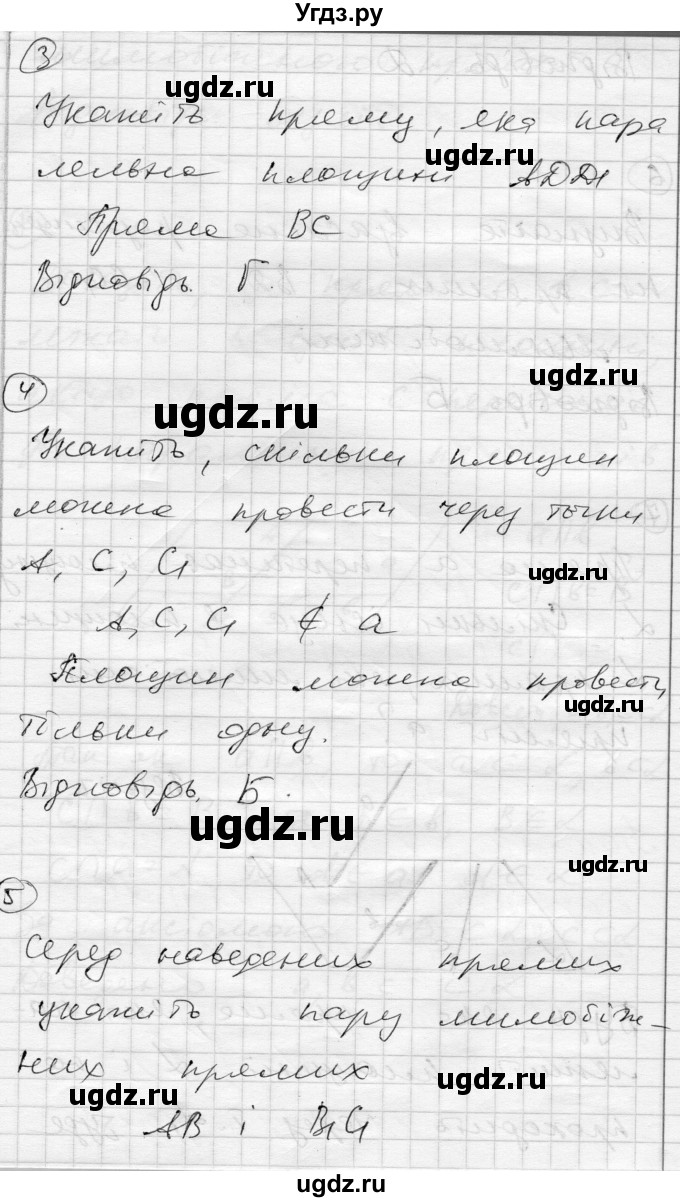 Угдз.ру
3
Укажіть пряму, яка пара
лельна площині ADD1
Пряма BC
Відповідь. Г.
4
Укажіть, скільки площин
можна провести через точки
A, C, C1
A, C, C1 ∉ a
Площин можна провести
тільки одну.
Відповідь. Б.
5
Серед наведених прямих
укажіть пару мимобіж-
них прямих
AB і B1C1
ugdz.ru
ugdz.ru
ugdz.ru
ugdz.ru
ugdz.ru
ugdz.ru
ugdz.ru
ugdz.ru
ugdz.ru
ugdz.ru
ugdz.ru